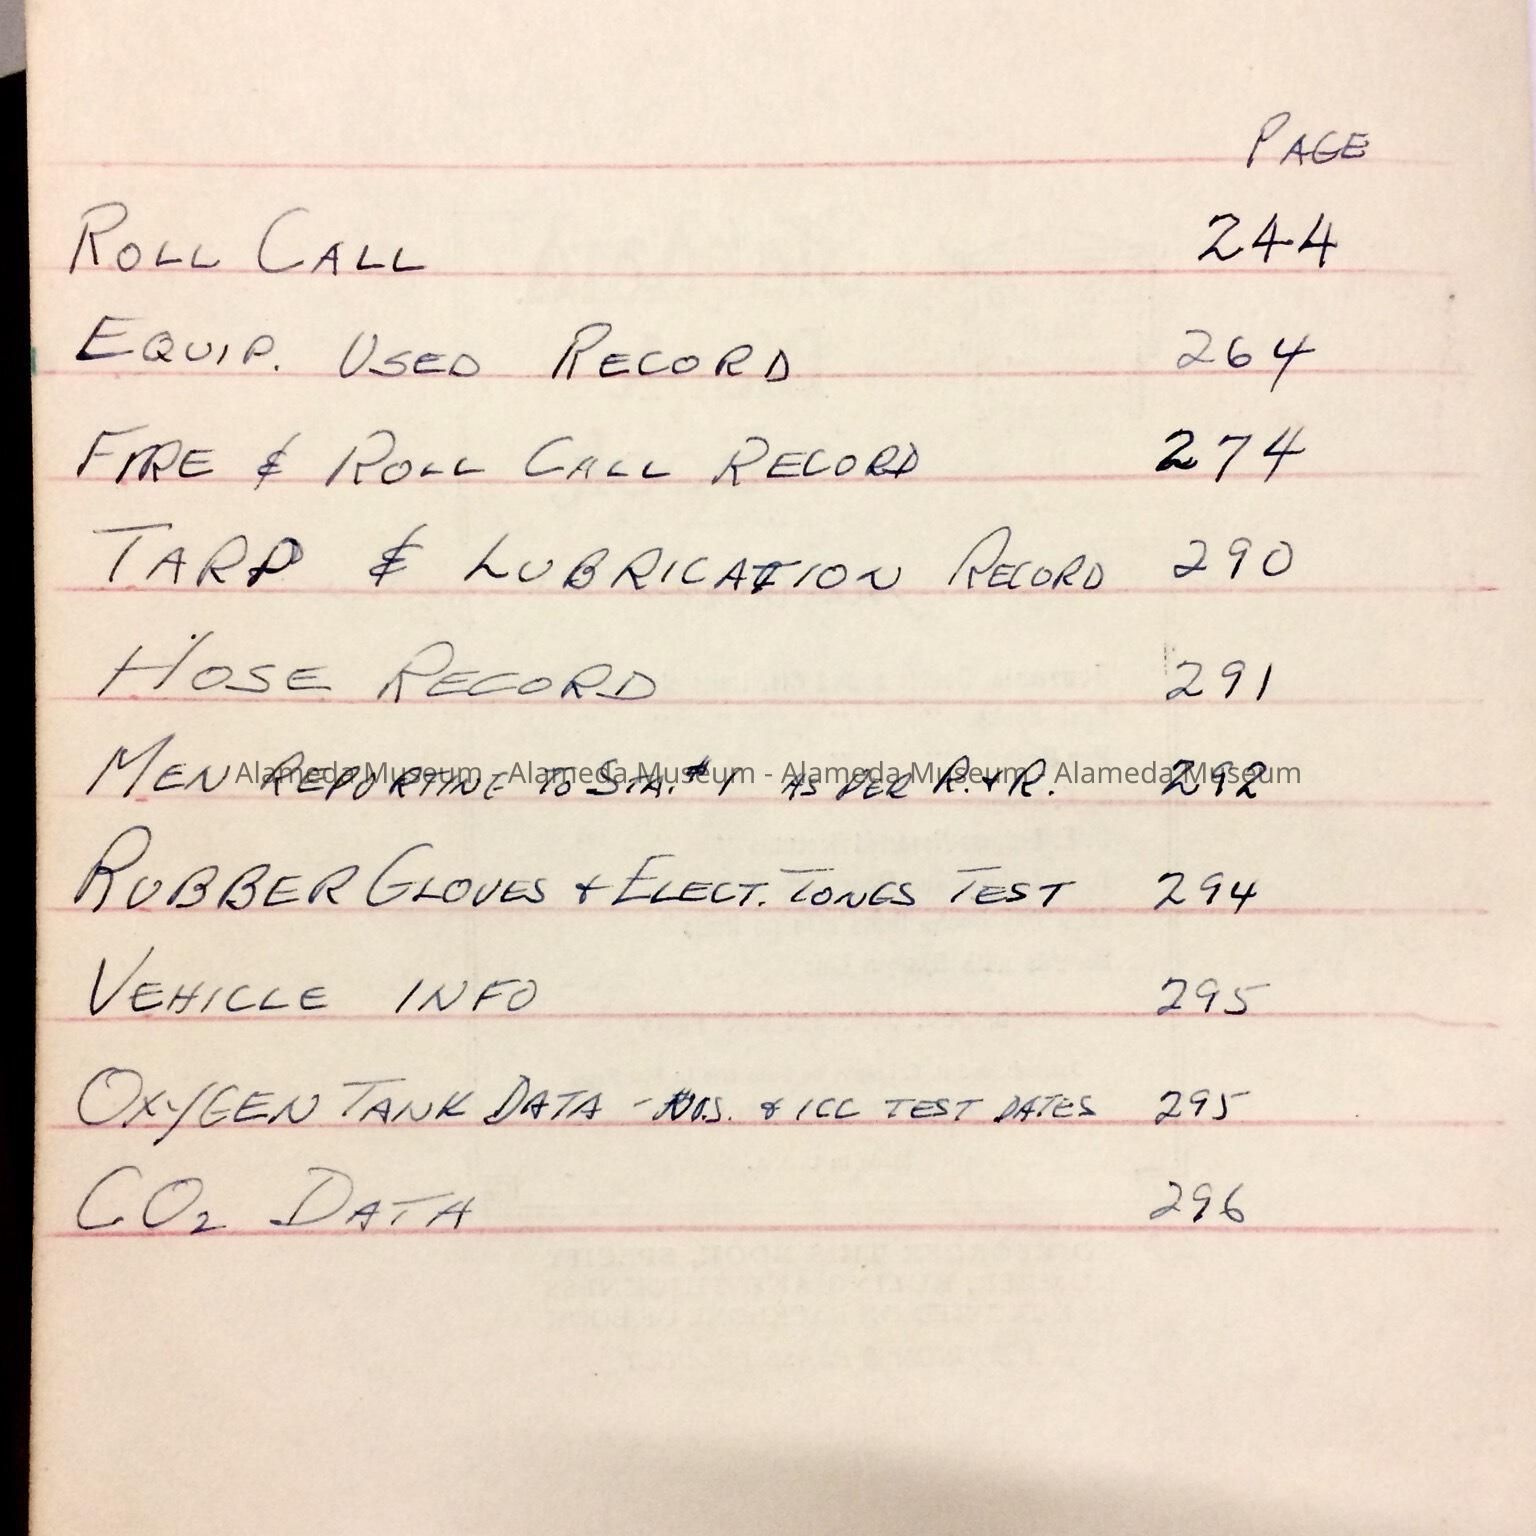 PAGE
ROLL CALL 244
EQUIP. USED RECORD 264
FIRE & ROLL CALL RECORD 274
TARP & LUBRICATION RECORD 290
HOSE RECORD 291
MEN REPORTING TO STA. #1 AS PER R. & R. 292
Alameda Museum - Alameda Museum - Alameda Museum - Alameda Museum
RUBBER GLOVES & ELECT. TONGS TEST 294
VEHICLE INFO 295
OXYGEN TANK DATA - NOS. & ICC TEST DATES 295
CO2 DATA 296